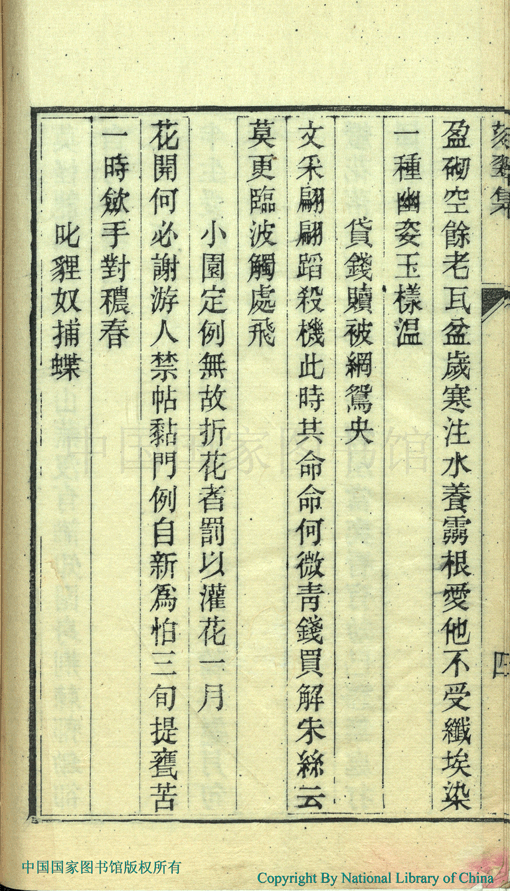 盈砌空餘老瓦盆歲寒注水養靈根愛他不受纖埃染
一種幽姿玉樣温
貸錢贖被網鴛央
文采翩翩蹈殺機此時共命命何微靑錢買解朱絲云
莫更臨波觸處飛
小園定例無故折花者罰以灌花一月
花開何必謝游人禁帖黏門例自新爲怕三旬提甕苦
一時斂手對穠春
叱貍奴捕蝶
四
中国国家图书馆
中国国家图书馆版权所有
Copyright By National Library of China